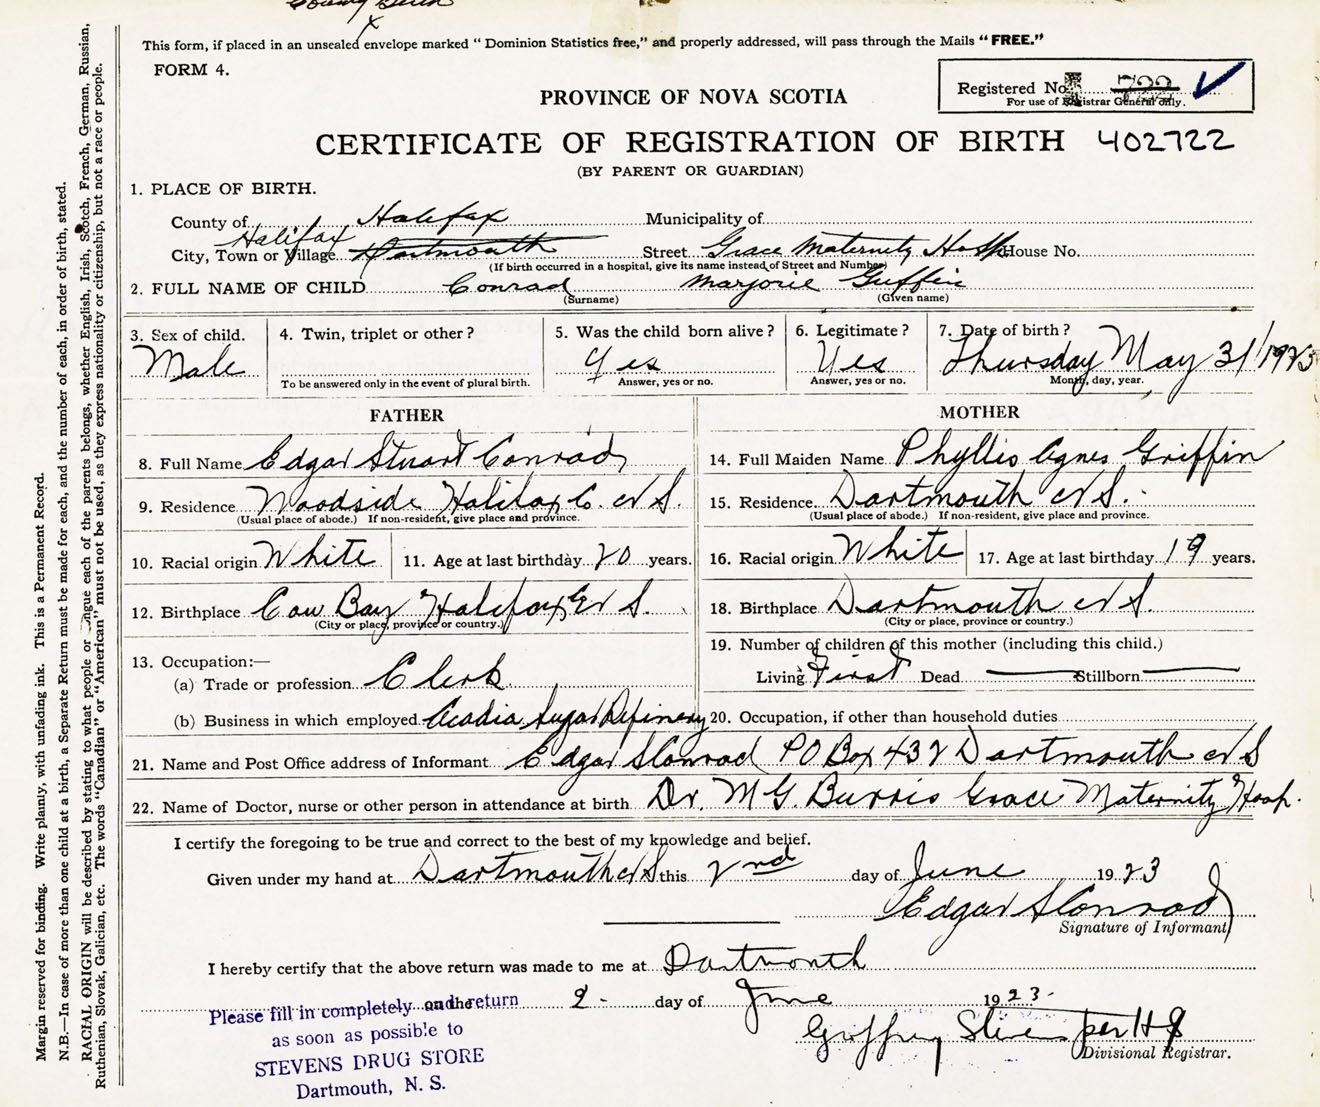 This form, if placed in an unsealed envelope marked "Dominion Statistics free," and properly addressed, will pass through the Mails "FREE."
FORM 4.
Registered No. 722
For use of Registrar General only.
PROVINCE OF NOVA SCOTIA
CERTIFICATE OF REGISTRATION OF BIRTH 402722
(BY PARENT OR GUARDIAN)
1. PLACE OF BIRTH.
County of Halifax Municipality of
Halifax
City, Town or Village Dartmouth Street Grace Maternity Hosp. House No.
(If birth occurred in a hospital, give its name instead of Street and Number)
2. FULL NAME OF CHILD Conrad Marjorie Griffin
(Surname) (Given name)
3. Sex of child. 4. Twin, triplet or other? 5. Was the child born alive? 6. Legitimate? 7. Date of birth?
Male Yes Yes Thursday May 31/1923
To be answered only in the event of plural birth. Answer, yes or no. Answer, yes or no. Month, day, year.
FATHER MOTHER
8. Full Name Edgar Stuart Conrad 14. Full Maiden Name Phyllis Agnes Griffin
9. Residence Woodside Halifax C. N S. 15. Residence Dartmouth N S.
(Usual place of abode.) If non-resident, give place and province. (Usual place of abode.) If non-resident, give place and province.
10. Racial origin White 11. Age at last birthday 20 years. 16. Racial origin White 17. Age at last birthday 19 years.
12. Birthplace Cow Bay Halifax C N S. 18. Birthplace Dartmouth N S.
(City or place, province or country.) (City or place, province or country.)
19. Number of children of this mother (including this child.)
13. Occupation:—
(a) Trade or profession Clerk Living First Dead — Stillborn —
(b) Business in which employed Acadia Sugar Refinery 20. Occupation, if other than household duties
21. Name and Post Office address of Informant Edgar S Conrad P O Box 432 Dartmouth N S
22. Name of Doctor, nurse or other person in attendance at birth Dr. M G. Burris Grace Maternity Hosp.
I certify the foregoing to be true and correct to the best of my knowledge and belief.
Given under my hand at Dartmouth N S this 2nd day of June 1923
Edgar S Conrad
Signature of Informant
I hereby certify that the above return was made to me at Dartmouth
on the 2 - day of June 1923.
per
Divisional Registrar.
Please fill in completely and return
as soon as possible to
STEVENS DRUG STORE
Dartmouth, N. S.
Margin reserved for binding. Write plainly, with unfading ink. This is a Permanent Record.
N.B.—In case of more than one child at a birth, a Separate Return must be made for each, and the number of each, in order of birth, stated.
RACIAL ORIGIN will be described by stating to what people or tongue each of the parents belongs, whether English, Irish, Scotch, French, German, Russian,
Ruthenian, Slovak, Galician, etc. The words "Canadian" or "American" must not be used, as they express nationality or citizenship, but not a race or people.